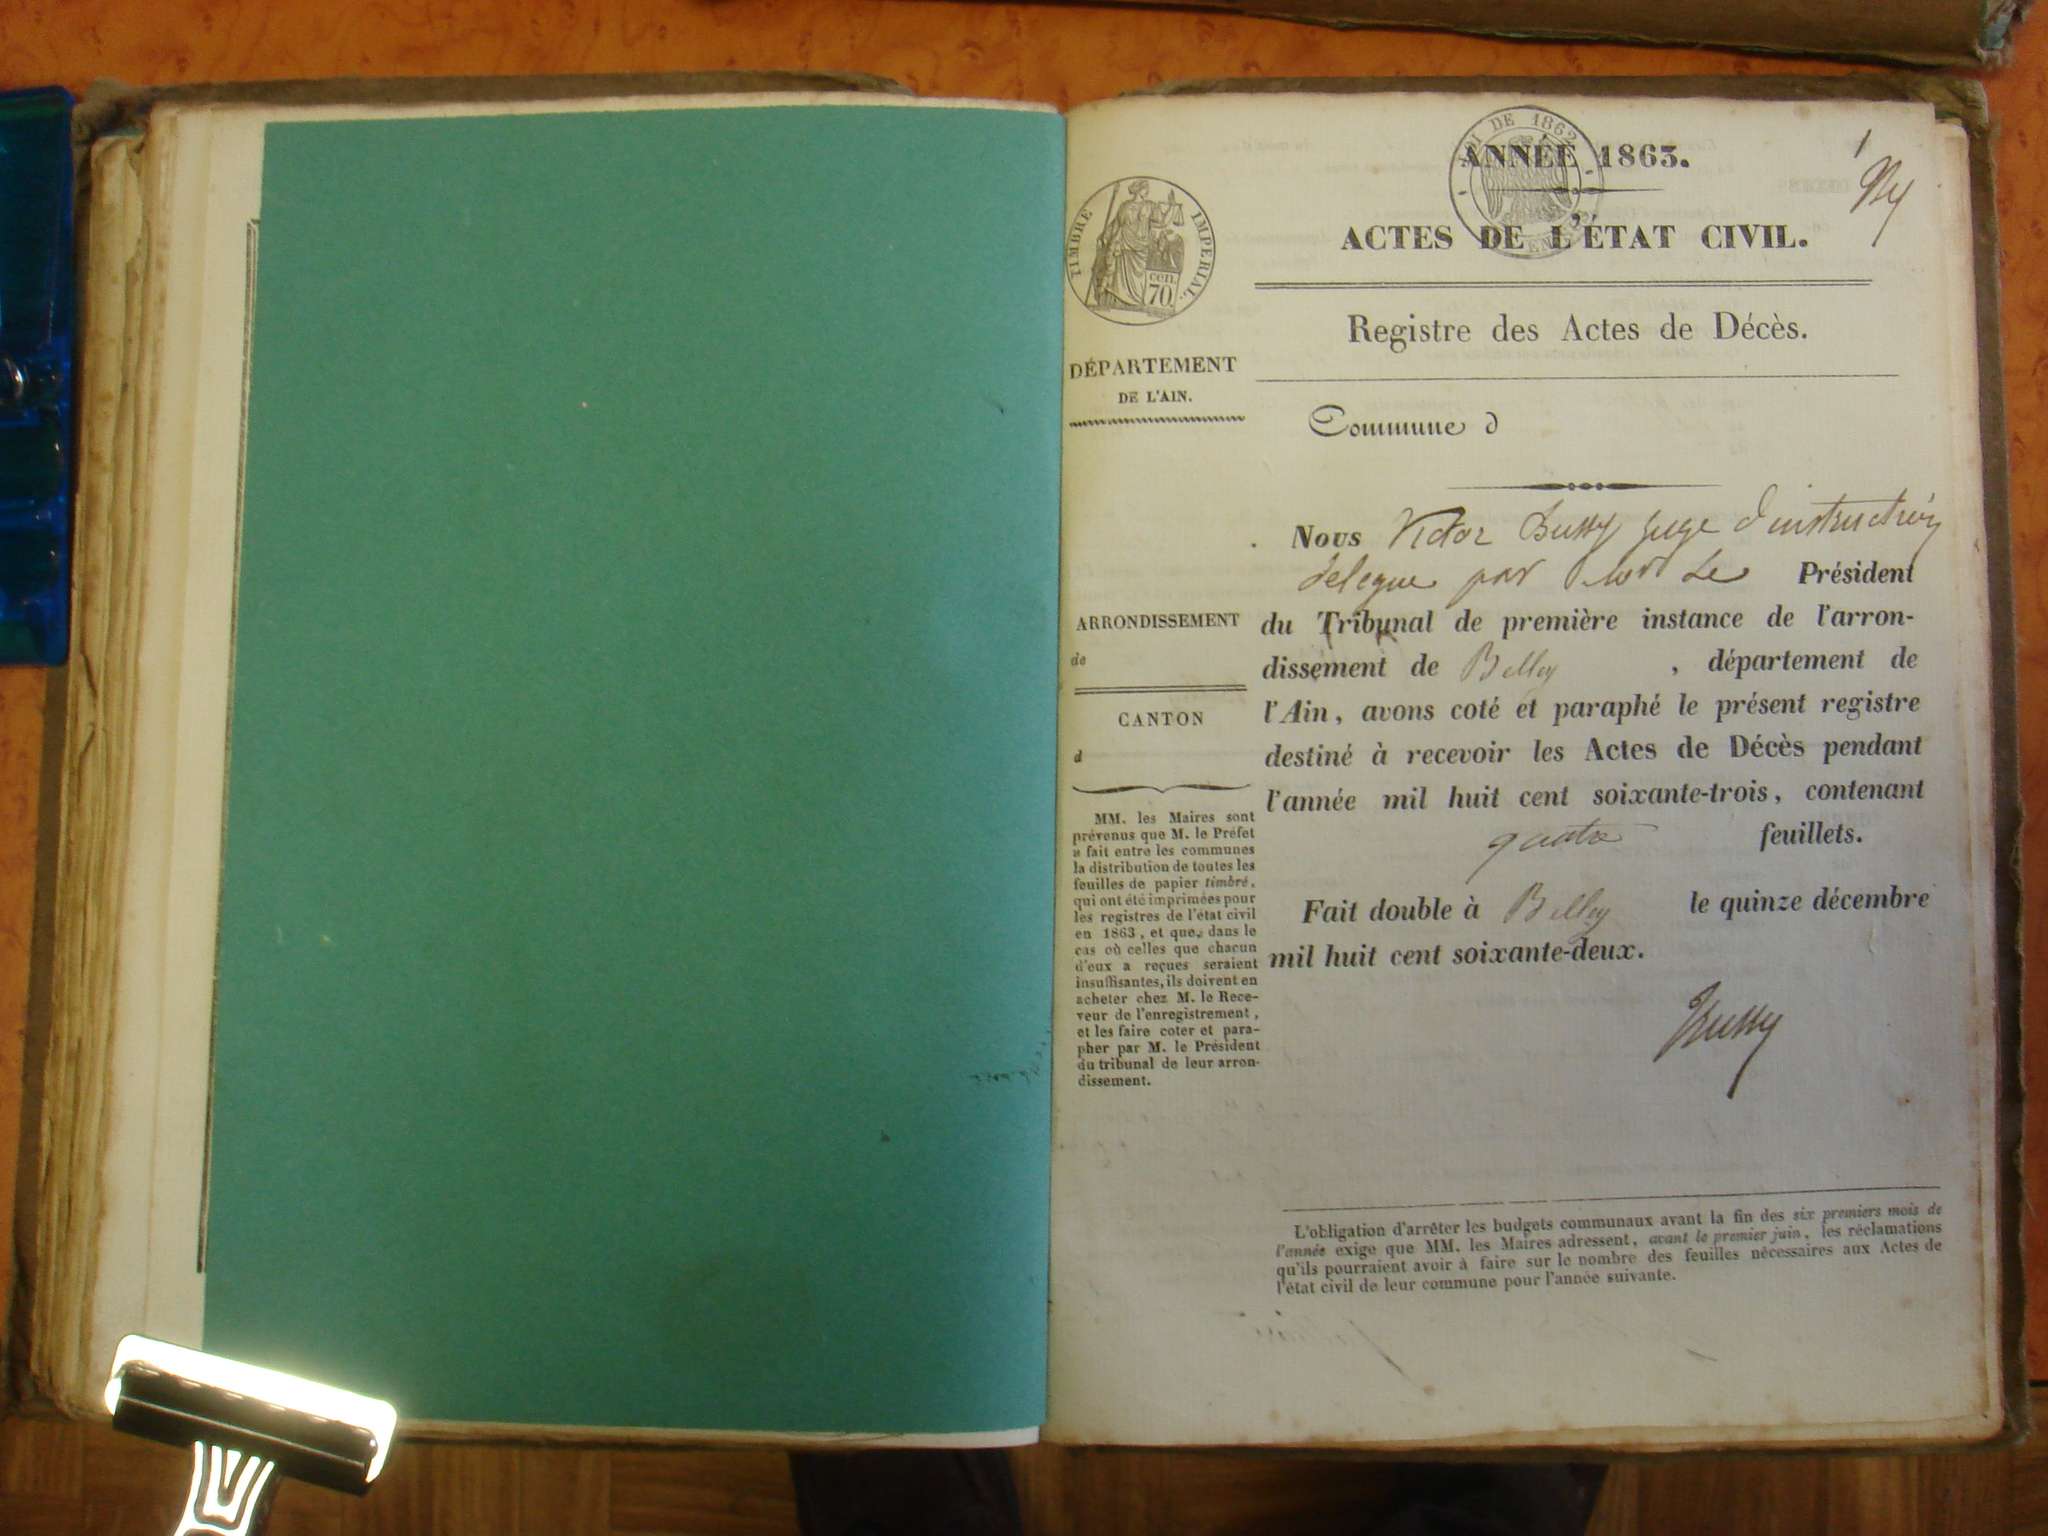 1
LOI DE 1862
ANNÉE 1863.
ACTES DE L'ÉTAT CIVIL.
TIMBRE IMPERIAL.
cen.
70.
Registre des Actes de Décès.
DÉPARTEMENT
DE L'AIN.
Commune d
ARRONDISSEMENT
de
CANTON
d
MM. les Maires sont
prévenus que M. le Préfet
a fait entre les communes
la distribution de toutes les
feuilles de papier timbré,
qui ont été imprimées pour
les registres de l'état civil
en 1863, et que, dans le
cas où celles que chacun
d'eux a reçues seraient
insuffisantes, ils doivent en
acheter chez M. le Rece-
veur de l'enregistrement,
et les faire coter et para-
pher par M. le Président
du tribunal de leur arron-
dissement.
Nous Victor Bussy juge d'instruction
delegue par Mr Le Président
du Tribunal de première instance de l'arron-
dissement de Belley , département de
l'Ain, avons coté et paraphé le présent registre
destiné à recevoir les Actes de Décès pendant
l'année mil huit cent soixante-trois, contenant
quatre feuillets.
Fait double à Belley le quinze décembre
mil huit cent soixante-deux.
Bussy
L'obligation d'arrêter les budgets communaux avant la fin des six premiers mois de
l'année exige que MM. les Maires adressent, avant le premier juin, les réclamations
qu'ils pourraient avoir à faire sur le nombre des feuilles nécessaires aux Actes de
l'état civil de leur commune pour l'année suivante.